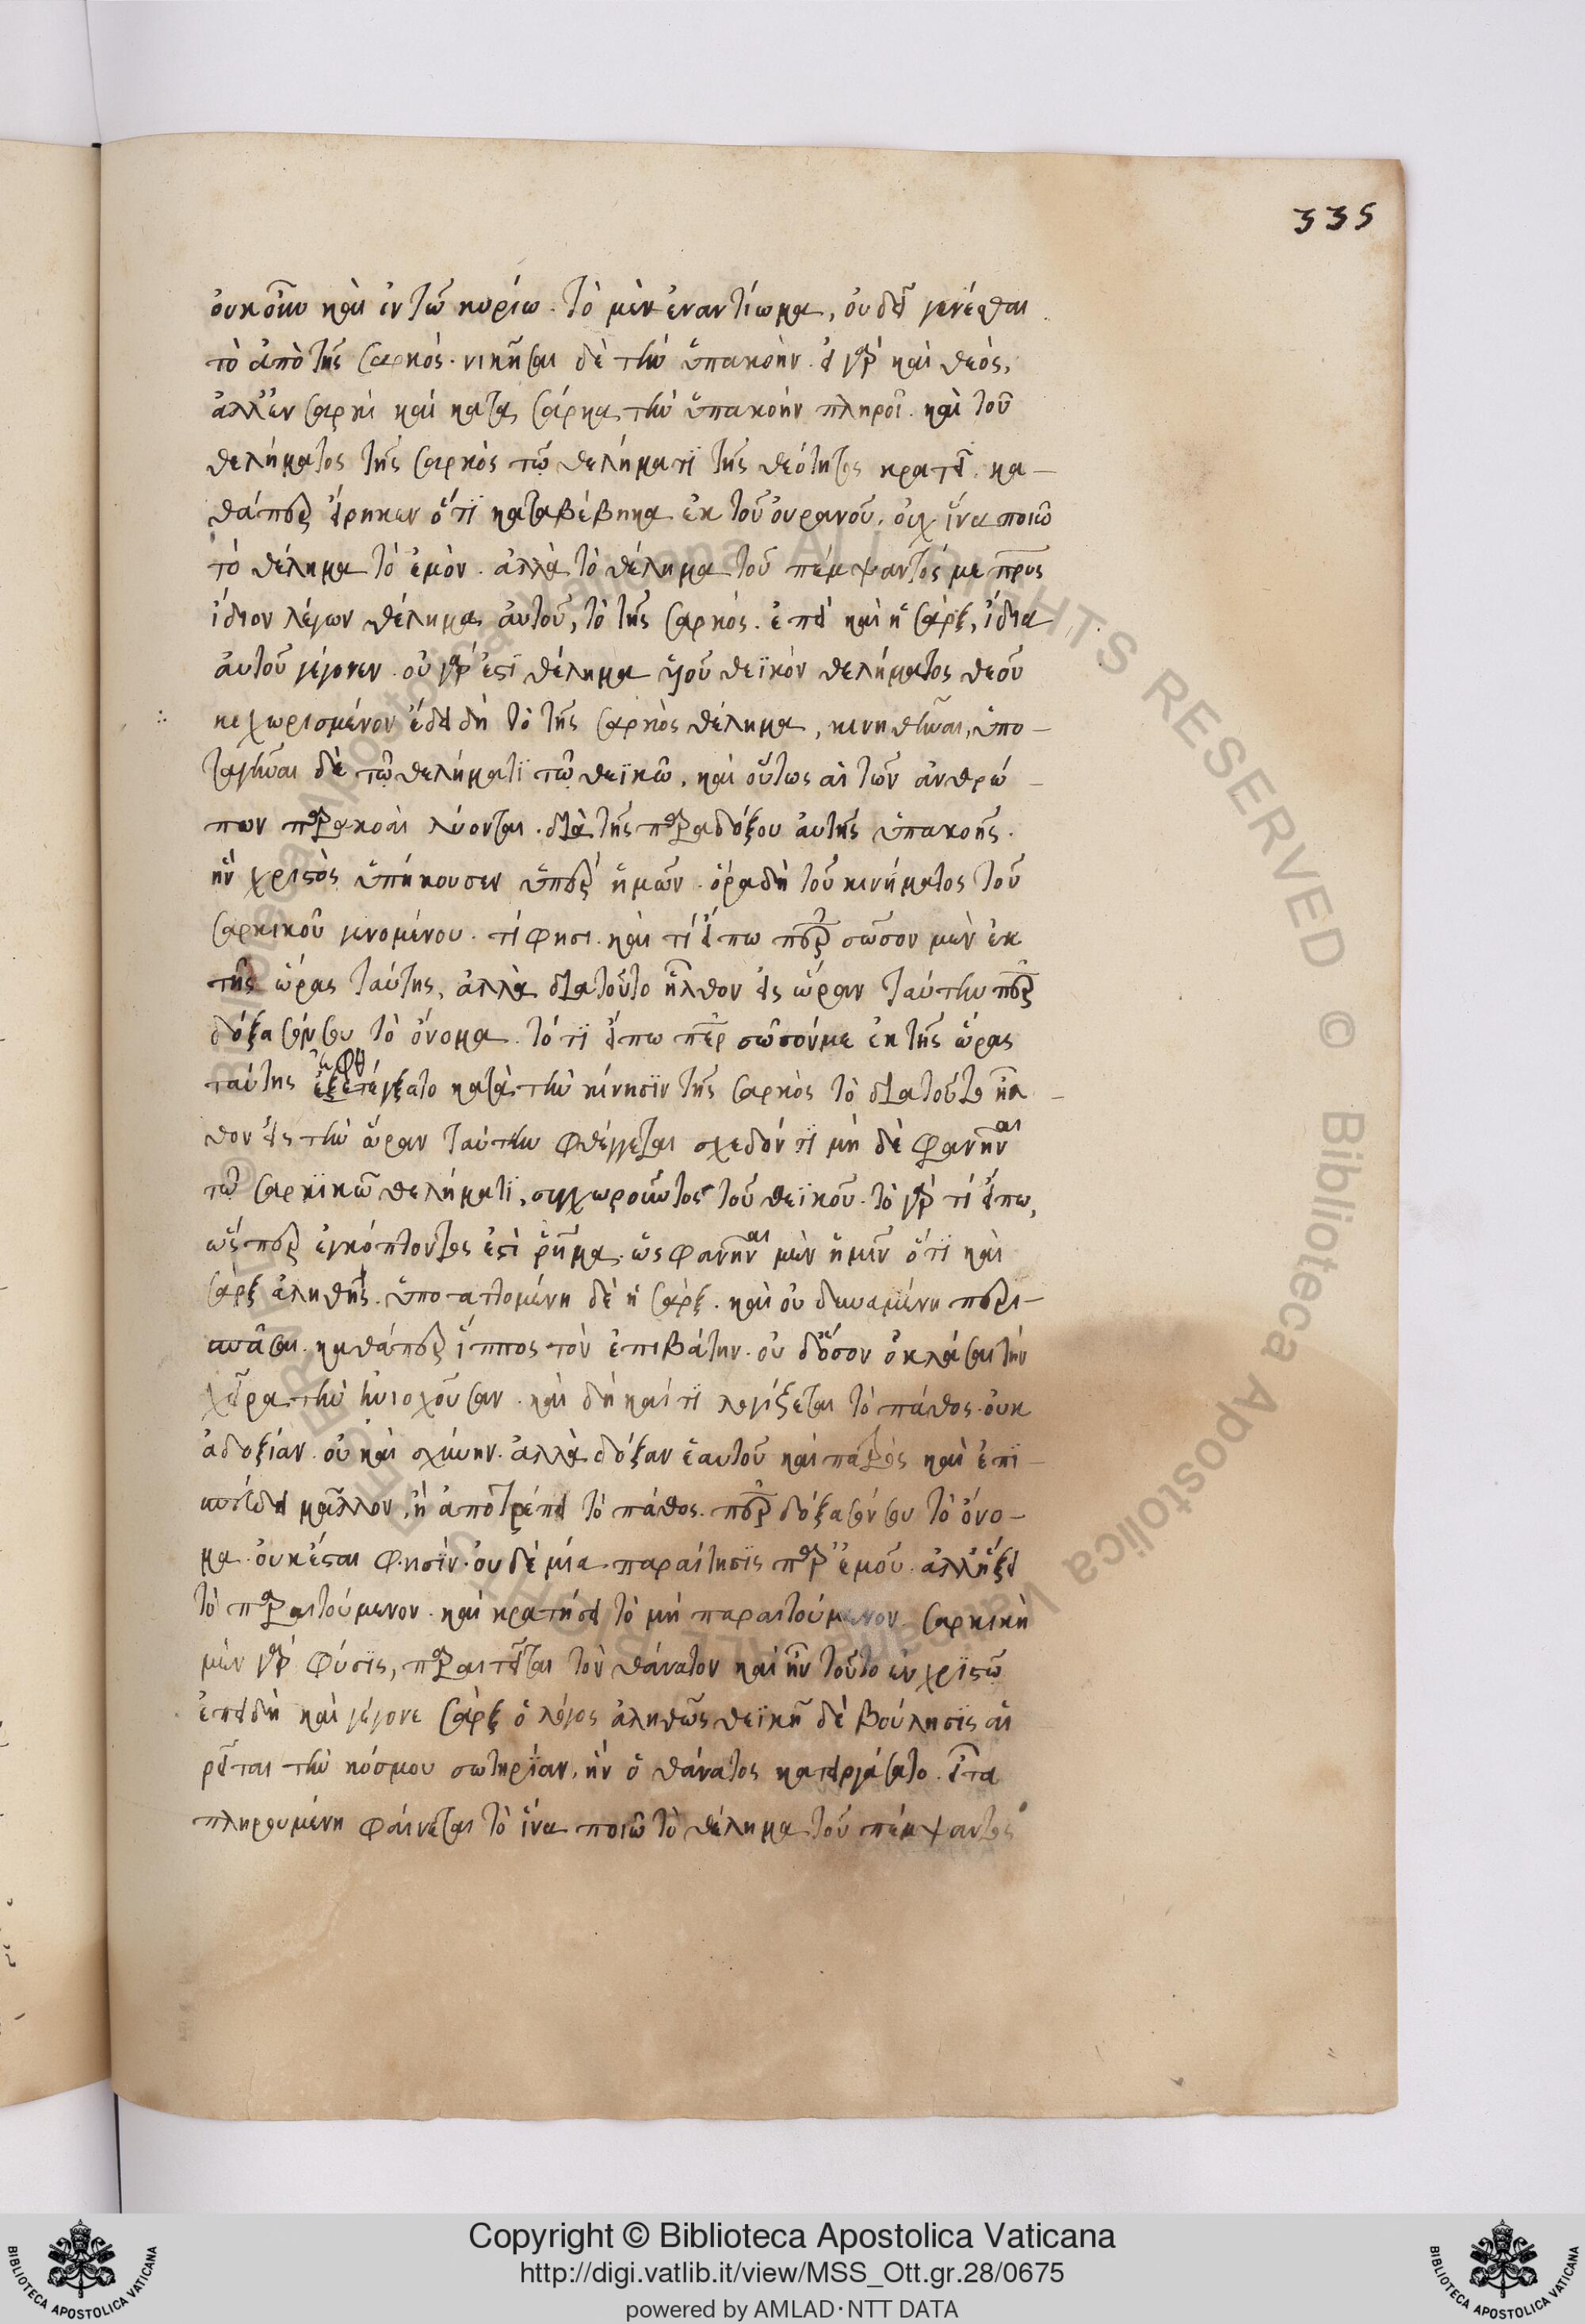 335
οὐκοῦν καὶ ἐν τῶ κυρίω. τὸ μὲν ἐναντίωμα, οὐ δεῖ γενέσθαι
τὸ ἀπὸ τῆς σαρκός. νικῆσαι δὲ τὴν ὑπακοὴν. εἰ γὰρ καὶ θεὸς,
ἀλλ' ἐν σαρκὶ καὶ κατὰ σάρκα τὴν ὑπακοὴν πληροῖ. καὶ τοῦ
θελήματος τῆς σαρκὸς τῶ θελήματϊ τῆς θεότητος κρατεῖ. κα-
θάπερ εἴρηκεν ὅτϊ καταβέβηκα ἐκ τοῦ οὐρανοῦ. οὐχ ἵνα ποιῶ
τὸ θέλημα τὸ ἐμὸν. ἀλλὰ τὸ θέλημα τοῦ πέμψαντός με πρς
ἴδιον λέγων θέλημα αὐτοῦ, τὸ τῆς σαρκός. ἐπεὶ καὶ ἡ σὰρξ, ἰδία
αὐτοῦ γέγονεν. οὐ γὰρ ἐστϊ θέλημα υἱοῦ θεϊκὸν θελήματος θεοῦ
κεχωρισμένον ἔδει δὴ τὸ τῆς σαρκὸς θέλημα, κινηθῆναι, ὑπο-
ταγῆναι δὲ τῶ θελήματϊ τῶ θεϊκῶ. καὶ οὕτως αἱ τῶν ἀνθρώ-
πων παρακοαὶ λύονται. διὰ τῆς παραδόξου αὐτῆς ὑπακοῆς.
ἣν χριστὸς ὑπήκουσεν ὑπὲρ ἡμῶν. ὅρα δὴ τοῦ κινήματος τοῦ
σαρκικοῦ γενομένου. τί φησι. καὶ τί εἴπω περ σῶσον μὲν ἐκ
τῆς ὥρας ταύτης, ἀλλὰ διατοῦτο ἦλθον εἰς ὥραν ταύτην περ
δόξασόν σου τὸ ὄνομα. τό τϊ εἴπω περ σῶσόν με ἐκ τῆς ὥρας
ταύτης κατὰ τὴν κίνησϊν τῆς σαρκὸς τὸ διατοῦτο ἦλ-
θον εἰς τὴν ὥραν ταύτην φθέγγεται σχεδόν τϊ μὴ δὲ φανῆναι
τῶ σαρκϊκῶ θελήματϊ, συγχωροῦντος τοῦ θεϊκοῦ. τὸ γὰρ τί εἴπω,
ὥσπερ ἐγκόπτοντος ἐστὶ ῥῆμα. ὡς φανῆναι μὲν ἡμῖν ὅτϊ καὶ
σὰρξ ἀληθὴς. ὑποταττομένη δὲ ἡ σὰρξ. καὶ οὐ δυναμένη περι-
σπᾶσαι. καθάπερ ἵππος τὸν ἐπιβάτην. οὐ δὅσον ὀκλάσαι τὴν
χεῖρα τὴν ἡνιοχοῦσαν. καὶ δὴ καί τϊ λογίζεται τὸ πάθος. οὐκ
ἀδοξίαν. οὐ καὶ σχύνην. ἀλλὰ δόξαν ἑαυτοῦ καὶ πατρὸς καὶ ἐπϊ-
σπεύδει μᾶλλον, ἢ ἀποτρέπει τὸ πάθος. περ δόξασόν σου τὸ ὄνο-
μα. οὐκέσται φησϊν. οὐδὲ μία παραίτησϊς παρ' ἐμοῦ. ἀλλ' ἥξει
τὸ παραιτούμενον. καὶ κρατήσει τὸ μὴ παραιτούμενον. σαρκικὴ
μὲν γὰρ φύσϊς, παραιτεῖται τὸν θάνατον καὶ ἦν τοῦτο ἐν χρϊστῶ
ἐπειδὴ καὶ γέγονε σὰρξ ὁ λόγος ἀληθῶς θεϊκὴ δὲ βούλησϊς αἱ
ρεῖται τὴν κόσμου σωτηρίαν, ἣν ὁ θάνατος κατειργάσατο. εἶτα
πληρουμένη φαίνεται τὸ ἵνα ποιῶ τὸ θέλημα τοῦ πέμψαντος
Copyright © Biblioteca Apostolica Vaticana
http://digi.vatlib.it/view/MSS_Ott.gr.28/0675
powered by AMLAD·NTT DATA
BIBLIOTECA APOSTOLICA VATICANA
BIBLIOTECA APOSTOLICA VATICANA